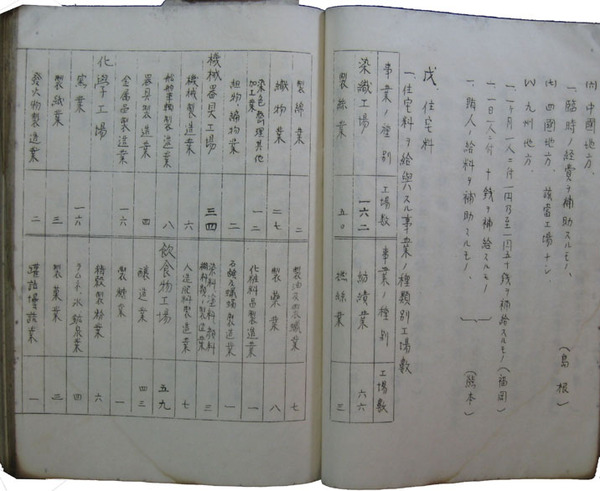 (六) 中國地方、
一、臨時ノ経費ヲ補助スルモノ、 (島根)
(七) 四國地方、該當工場ナシ、
(八) 九州地方
一、一ヶ月一人ニ付一円乃至一円五十銭ヲ補給スルモノ (福岡)
一、一日一人ニ付十銭ヲ補給スルモノ
一、賄人ノ給料ヲ補助スルモノ、 (熊本)
戊、住宅料
一、住宅料ヲ給與スル事業ノ種類別工場数
事業ノ種別 工場数 事業ノ種別 工場数
染織工場 一六二 紡績業 六六
製絲業 五〇 撚絲業 三
製綿業 二 製油及製蠟業 七
織物業 二七 製藥業 八
染色整理其他加工業 一二 化粧料品製造業 一
組物編物業 二 石鹼及蠟燭製造業 一
機械器具工場 三四 染料塗料顔料 三
機械製造業 六 人造肥料製造業 七
船舶車輛製造業 八 飲食物工場 五九
器具製造業 四 醸造業 四三
金属品製造業 一六 製糖業 一
化學工場 精穀製粉業 六
窯業 一六 ラムネ氷鉱泉業 四
製紙業 三 製菓業 三
發火物製造業 二 罐詰壜詰業 一